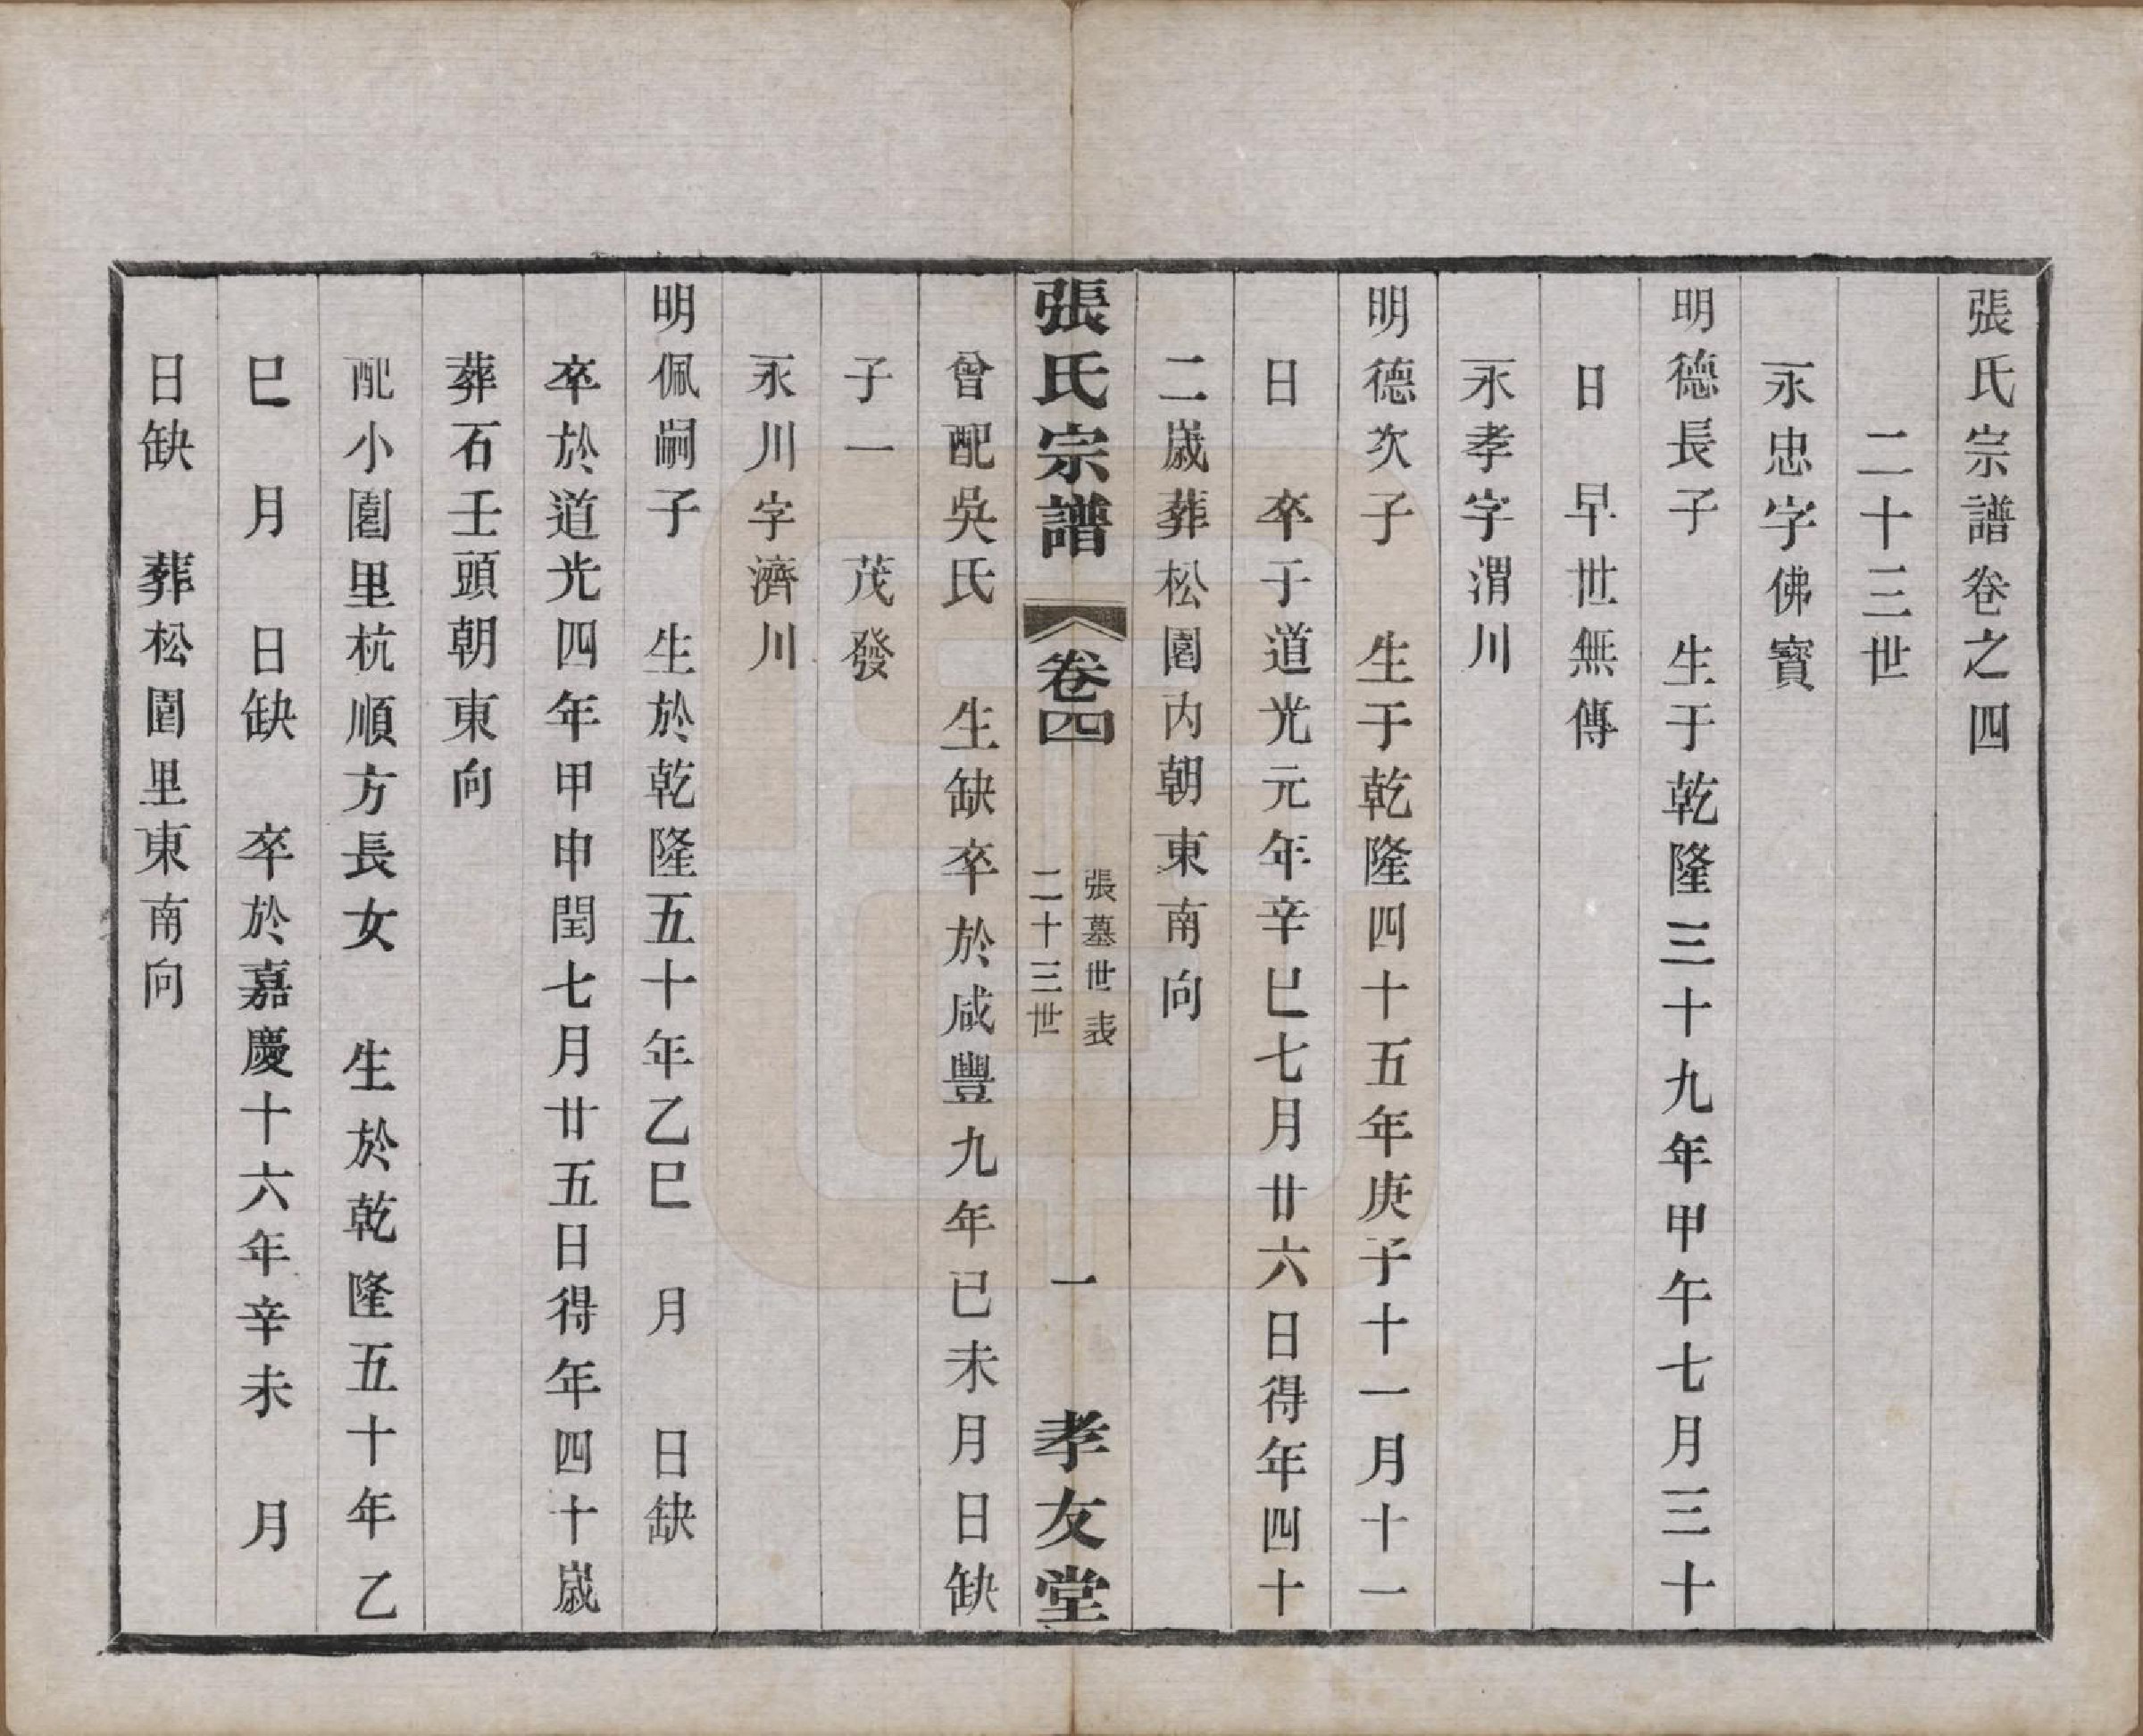 張氏宗譜卷之四
二十三世
永忠字佛寳
明德長子　生于乾隆三十九年甲午七月三十
日　早世無傳
永孝字渭川
明德次子　生于乾隆四十五年庚子十一月十一
日　卒于道光元年辛巳七月廿六日得年四十
二歲葬松園内朝東南向
張氏宗譜　卷四　張墓世表　二十三世　一　孝友堂
曾配吳氏　生缺卒於咸豐九年已未月日缺
子一　茂發
永川字濟川
明佩嗣子　生於乾隆五十年乙巳　月　日缺
卒於道光四年甲申閏七月廿五日得年四十歲
葬石壬頭朝東向
配小園里杭順方長女　生於乾隆五十年乙
巳　月　日缺　卒於嘉慶十六年辛未　月
日缺　葬松園里東南向